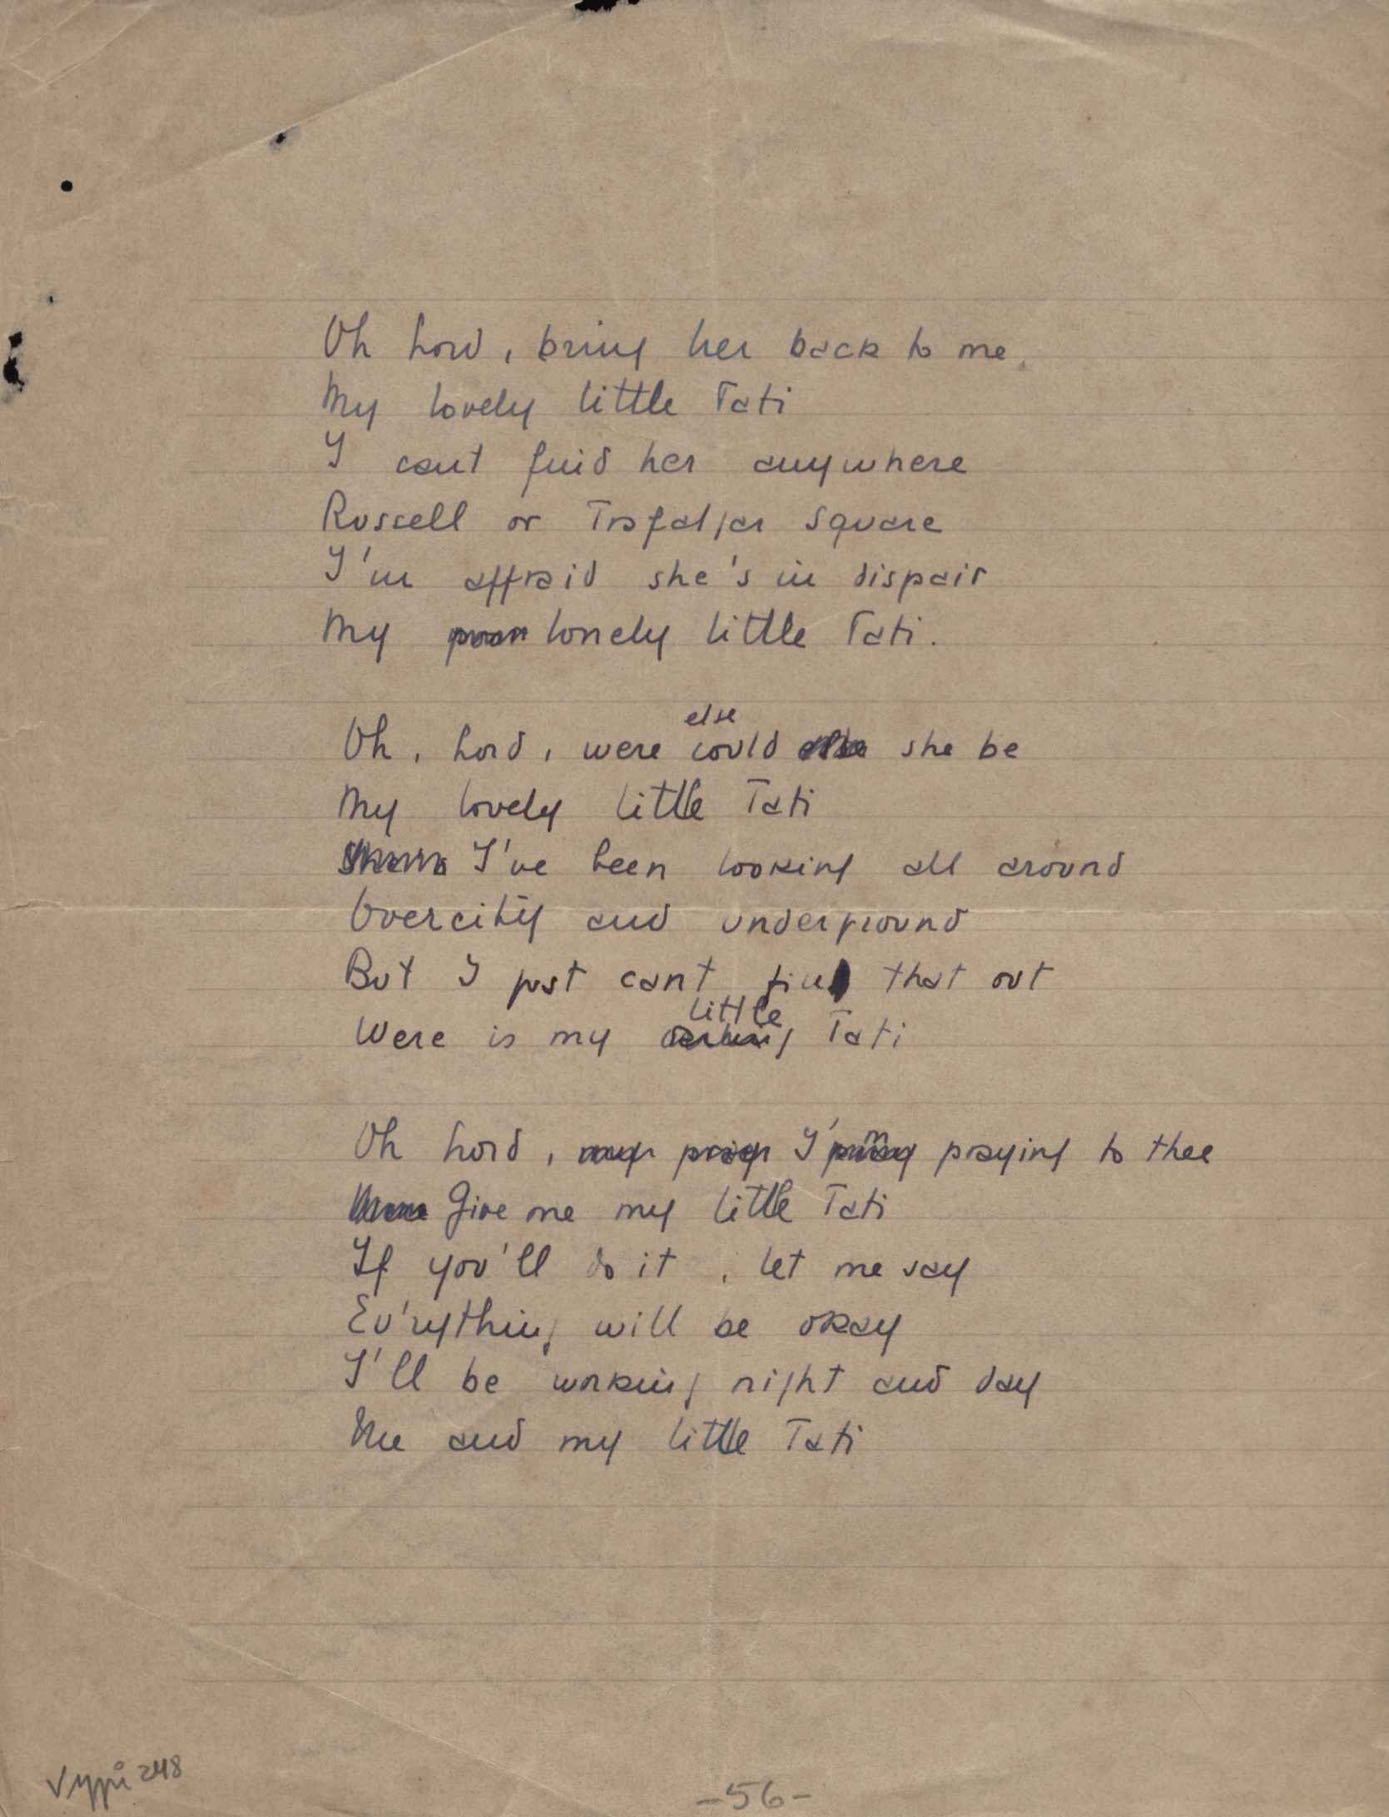 Oh Lord, bring her back to me.
My lovely little Tati
I cant find her anywhere
Russell or Trafalgar Square
I'm affraid she's in dispair
My poor lonely little Tati.
Oh, Lord, were else could she be
My lovely little Tati
I've been looking all around
Overcity and underground
But I just cant find that out
Were is my little Tati
Oh Lord, I'm praying to thee
Give me my little Tati
If you'll do it, let me say
Ev'rything will be okay
I'll be working night and day
Me and my little Tati
248
-56-